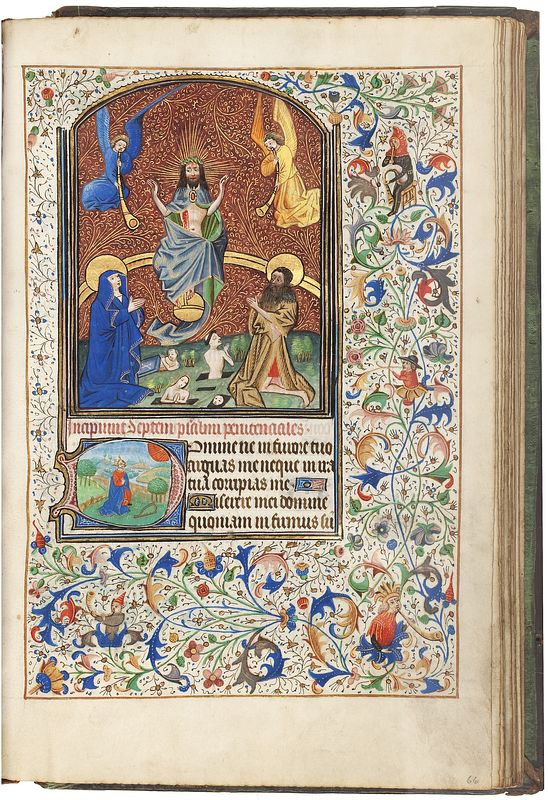 Incipiunt Septem psalmi penitenciales
Domine ne in furore tuo
arguas me neque in ira
tua corripias me
Miserere mei domine
quoniam infirmus su
66